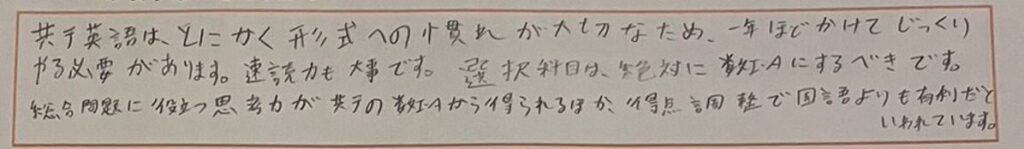 共テ英語は、とにかく形式への慣れが大切なため、一年ほどかけてじっくり
やる必要があります。速読力も大事です。選択科目は、絶対に数I・Aにするべきです。
総合問題に役立つ思考力が共テの数I・Aから得られるほか、得点調整で国語よりも有利だと
いわれています。